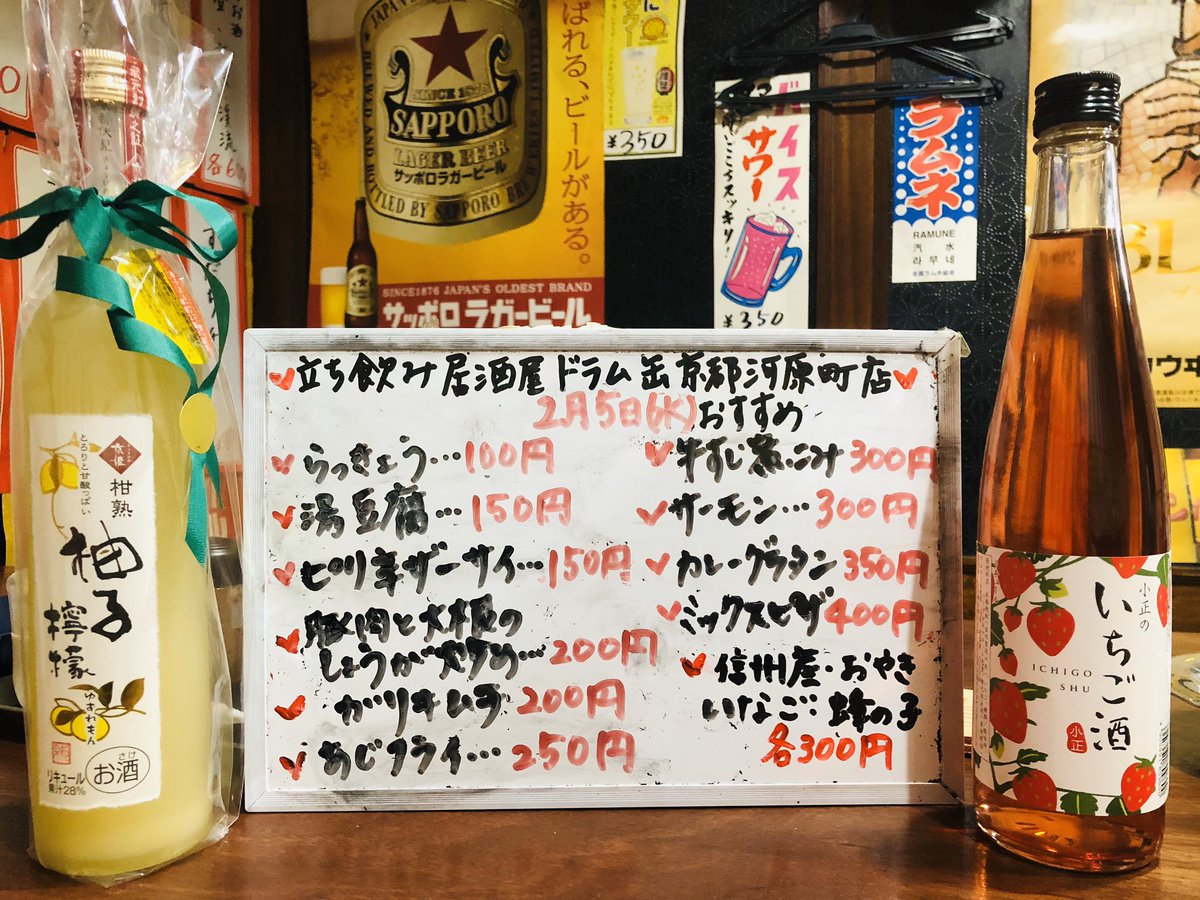 立ち飲み居酒屋ドラム缶京都河原町店
2月5日(水)おすすめ
らっきょう…100円
湯豆腐…150円
ピリ辛ザーサイ…150円
豚肉と大根の
しょうが炒め…200円
ガリキムチ200円
あじフライ…250円
牛すじ煮こみ300円
サーモン…300円
カレーグラタン350円
ミックスピザ400円
信州産・おやき
いなご・蜂の子
各300円
とろりと甘酸っぱい
柑熟
柚子
檸檬
ゆずれもん
お酒
さけ
リキュール
果汁28%
小正の
いちご酒
ICHIGO
SHU
小正
SINCE 1876
SAPPORO
LAGER BEER
サッポロラガービール
BOTTLED BY SAPPORO
ばれる、ビールがある。
SINCE1876 JAPAN'S OLDEST BRAND
サッポロラガービール
サワー
¥350
バイス
サワー
ごころスッキリ!
¥350
ラムネ
RAMUNE
汽水
라무네
全国ラムネ協会